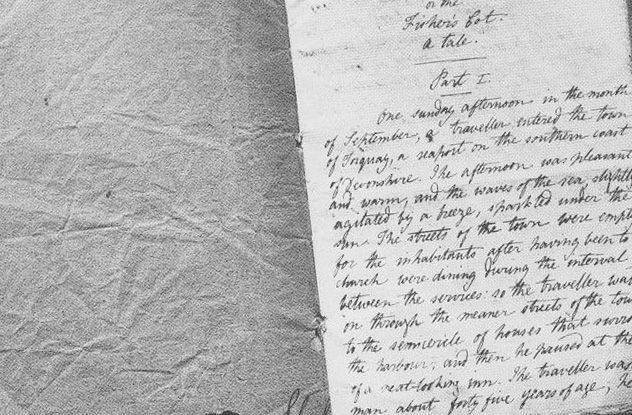 or the
Fisher's Cot.
a tale.
Part I.
One, sunday afternoon in the month
of September, a traveller entered the town
of Torquay, a seaport on the southern coast
of Devonshire. The afternoon was pleasant
and warm, and the waves of the sea, slightly
agitated by a breeze, sparkled under the
sun. The streets of the town were empt
for the inhabitants after having been to
church were dining during the interval
between the services: so the traveller was
on through the meaner streets of the tow
to the semicircle of houses that surro
the harbour; and then he paused at the
of a neat-looking inn. The traveller was
man about forty five years of age, he